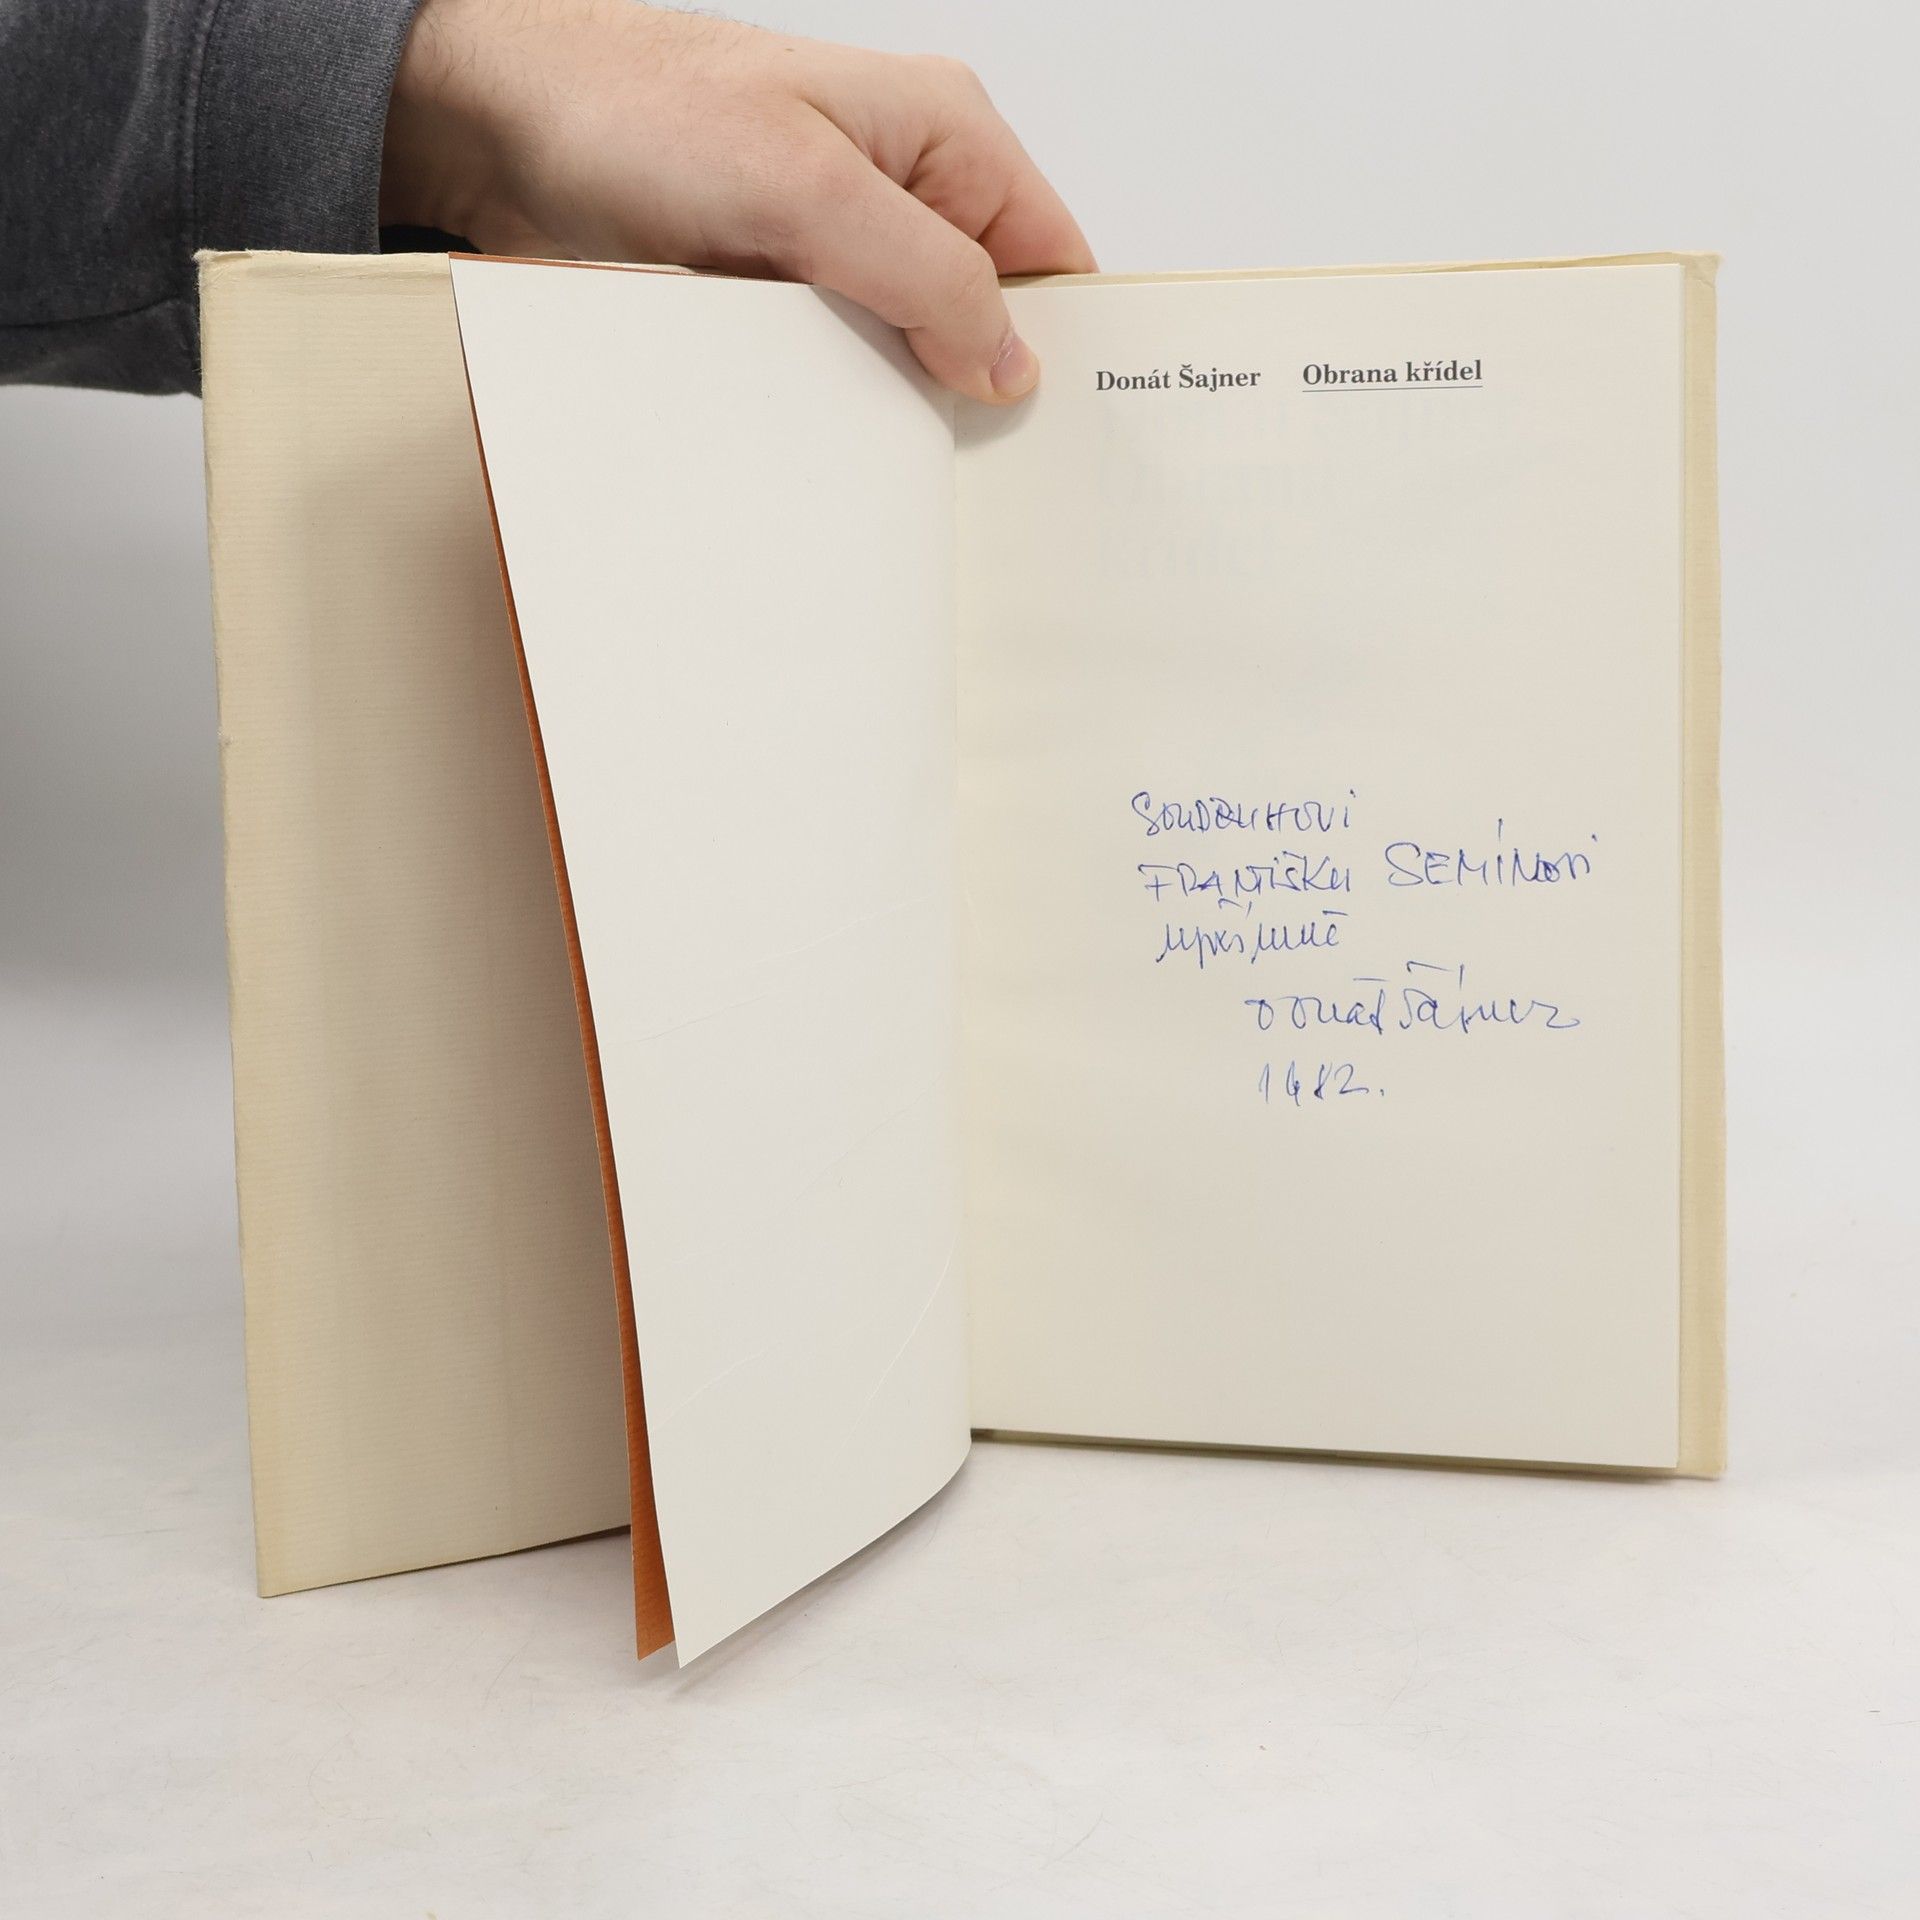 Donát Šajner Obrana křídel
SOUDRUHOVI
FRANTIŠKU SEMÍNOVI
upřímně
Donát Šajner
1982.